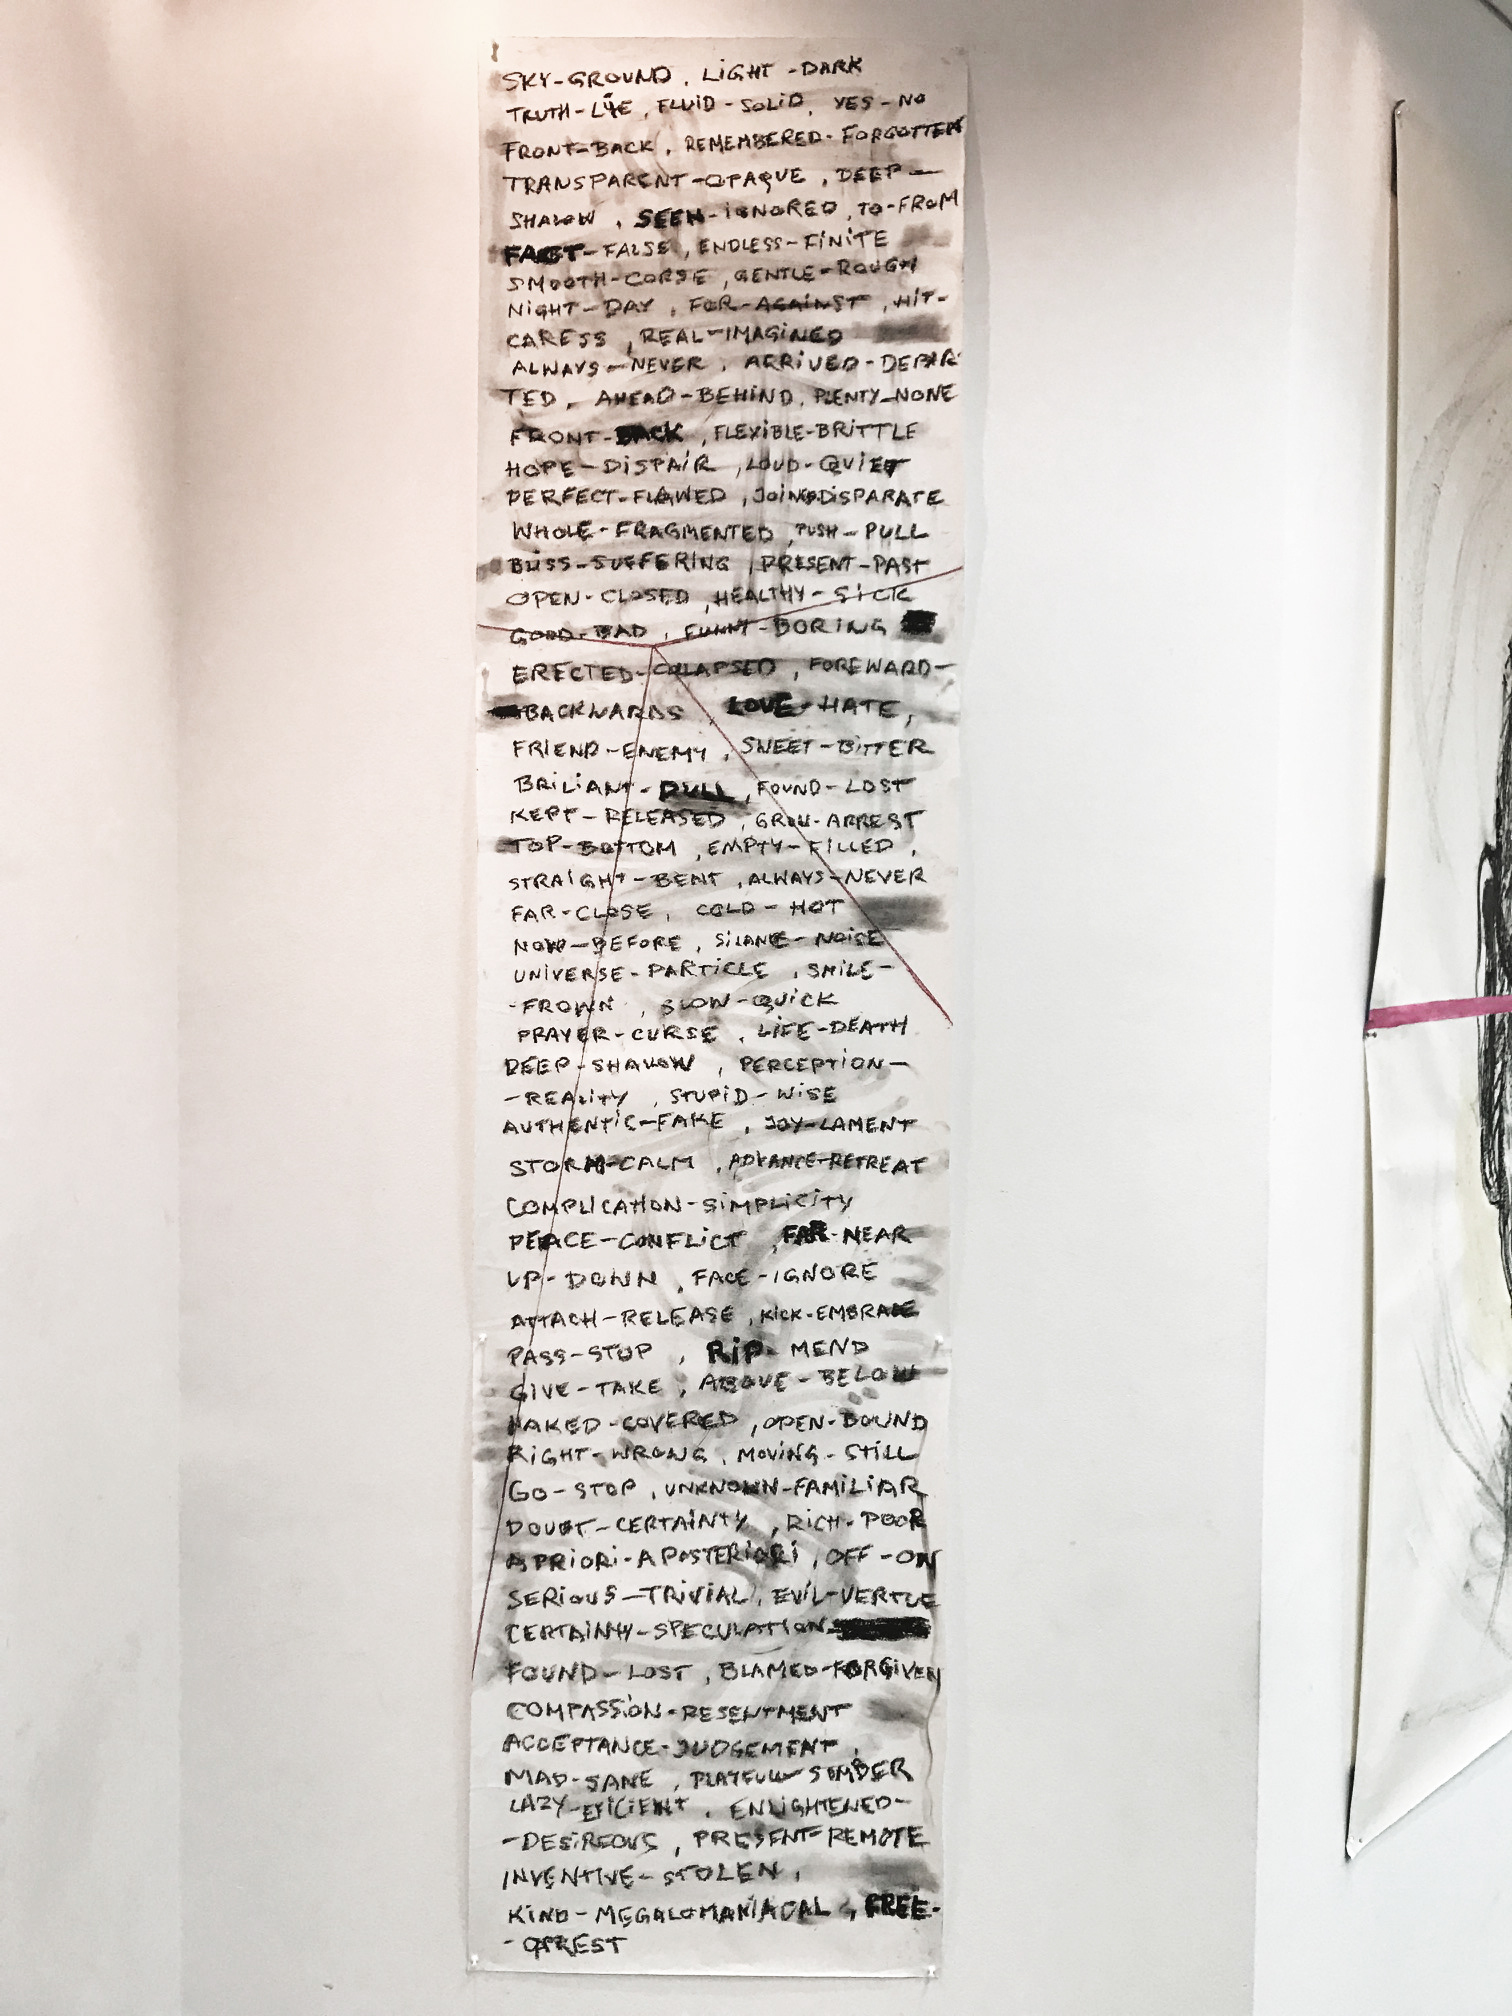 SKY-GROUND, LIGHT-DARK
TRUTH-LIE, FLUID-SOLID, YES-NO
FRONT-BACK, REMEMBERED-FORGOTTEN
TRANSPARENT-OPAQUE, DEEP-
SHALOW, SEEN-IGNORED, TO-FROM
FACT-FALSE, ENDLESS-FINITE
SMOOTH-CORSE, GENTLE-ROUGH
NIGHT-DAY, FOR-AGAINST, HIT-
CARESS, REAL-IMAGINED
ALWAYS-NEVER, ARRIVED-DEPAR-
TED, AHEAD-BEHIND, PLENTY-NONE
FRONT-BACK, FLEXIBLE-BRITTLE
HOPE-DISPAIR, LOUD-QUIET
PERFECT-FLAWED, JOIND-DISPARATE
WHOLE-FRAGMENTED, PUSH-PULL
BLISS-SUFFERING, PRESENT-PAST
OPEN-CLOSED, HEALTHY-SICK
GOOD-BAD, FUNNY-BORING
ERECTED-COLAPSED, FOREWARD-
BACKWARDS, LOVE-HATE,
FRIEND-ENEMY, SWEET-BITTER
BRILIANT-DULL, FOUND-LOST
KEPT-RELEASED, GROW-ARREST
TOP-BOTTOM, EMPTY-FILLED,
STRAIGHT-BENT, ALWAYS-NEVER
FAR-CLOSE, COLD-HOT
NOW-BEFORE, SILANCE-NOISE
UNIVERSE-PARTICLE, SMILE-
-FROWN, SLOW-QUICK
PRAYER-CURSE, LIFE-DEATH
DEEP-SHALOW, PERCEPTION-
-REALITY, STUPID-WISE
AUTHENTIC-FAKE, JOY-LAMENT
STORM-CALM, ADVANCE-RETREAT
COMPLICATION-SIMPLICITY
PEACE-CONFLICT, FAR-NEAR
UP-DOWN, FACE-IGNORE
ATTACH-RELEASE, KICK-EMBRACE
PASS-STOP, RIP-MEND
GIVE-TAKE, ABOVE-BELOW
NAKED-COVERED, OPEN-BOUND
RIGHT-WRONG, MOVING-STILL
GO-STOP, UNKNOWN-FAMILIAR
DOUBT-CERTAINTY, RICH-POOR
A PRIORI-A POSTERIORI, OFF-ON
SERIOUS-TRIVIAL, EVIL-VERTUE
CERTAINTY-SPECULATION
FOUND-LOST, BLAMED-FORGIVEN
COMPASSION-RESENTMENT
ACCEPTANCE-JUDGEMENT,
MAD-SANE, PLAYFULL-SOMBER
LAZY-EFICIENT, ENLIGHTENED-
-DESIREOUS, PRESENT-REMOTE
INVENTIVE-STOLEN,
KIND-MEGALOMANIACAL, FREE-